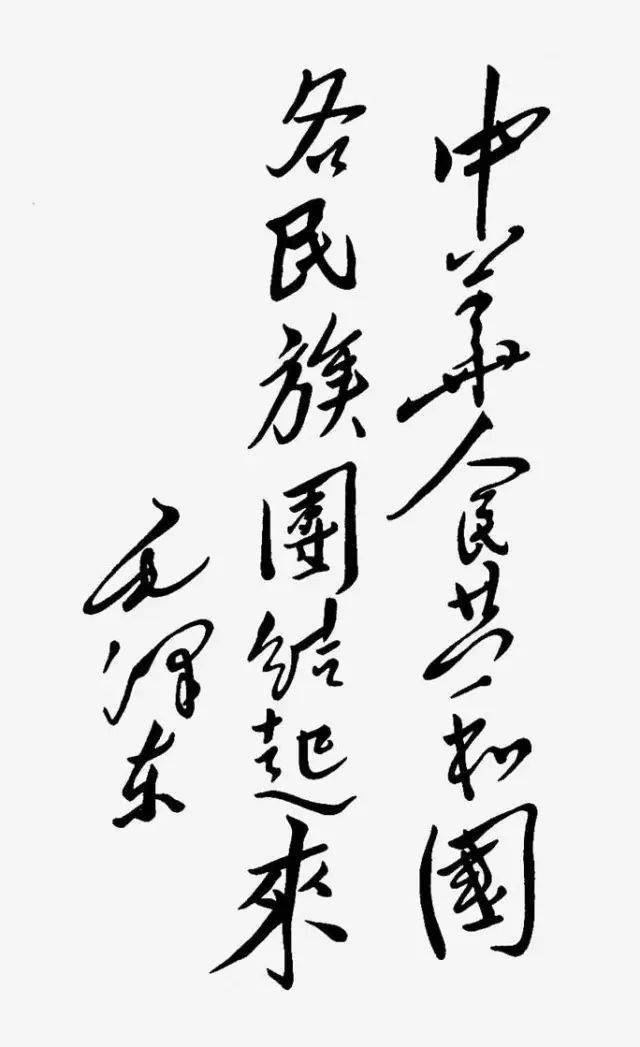 中華人民共和國
各民族團結起來
毛泽东